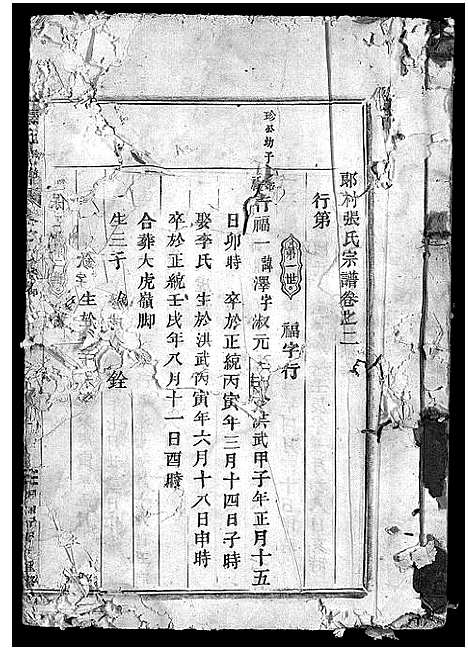 鄓村張氏宗譜卷之二
行第
第一世 福字行
珍公幼子
行福一 諱澤字淑元 生於洪武甲子年正月十五
日卯時 卒於正統丙寅年三月十四日子時
娶李氏 生於洪武丙寅年六月十八日申時
卒於正統壬戌年八月十一日酉時
合葬大虎嶺脚
生三子 銓